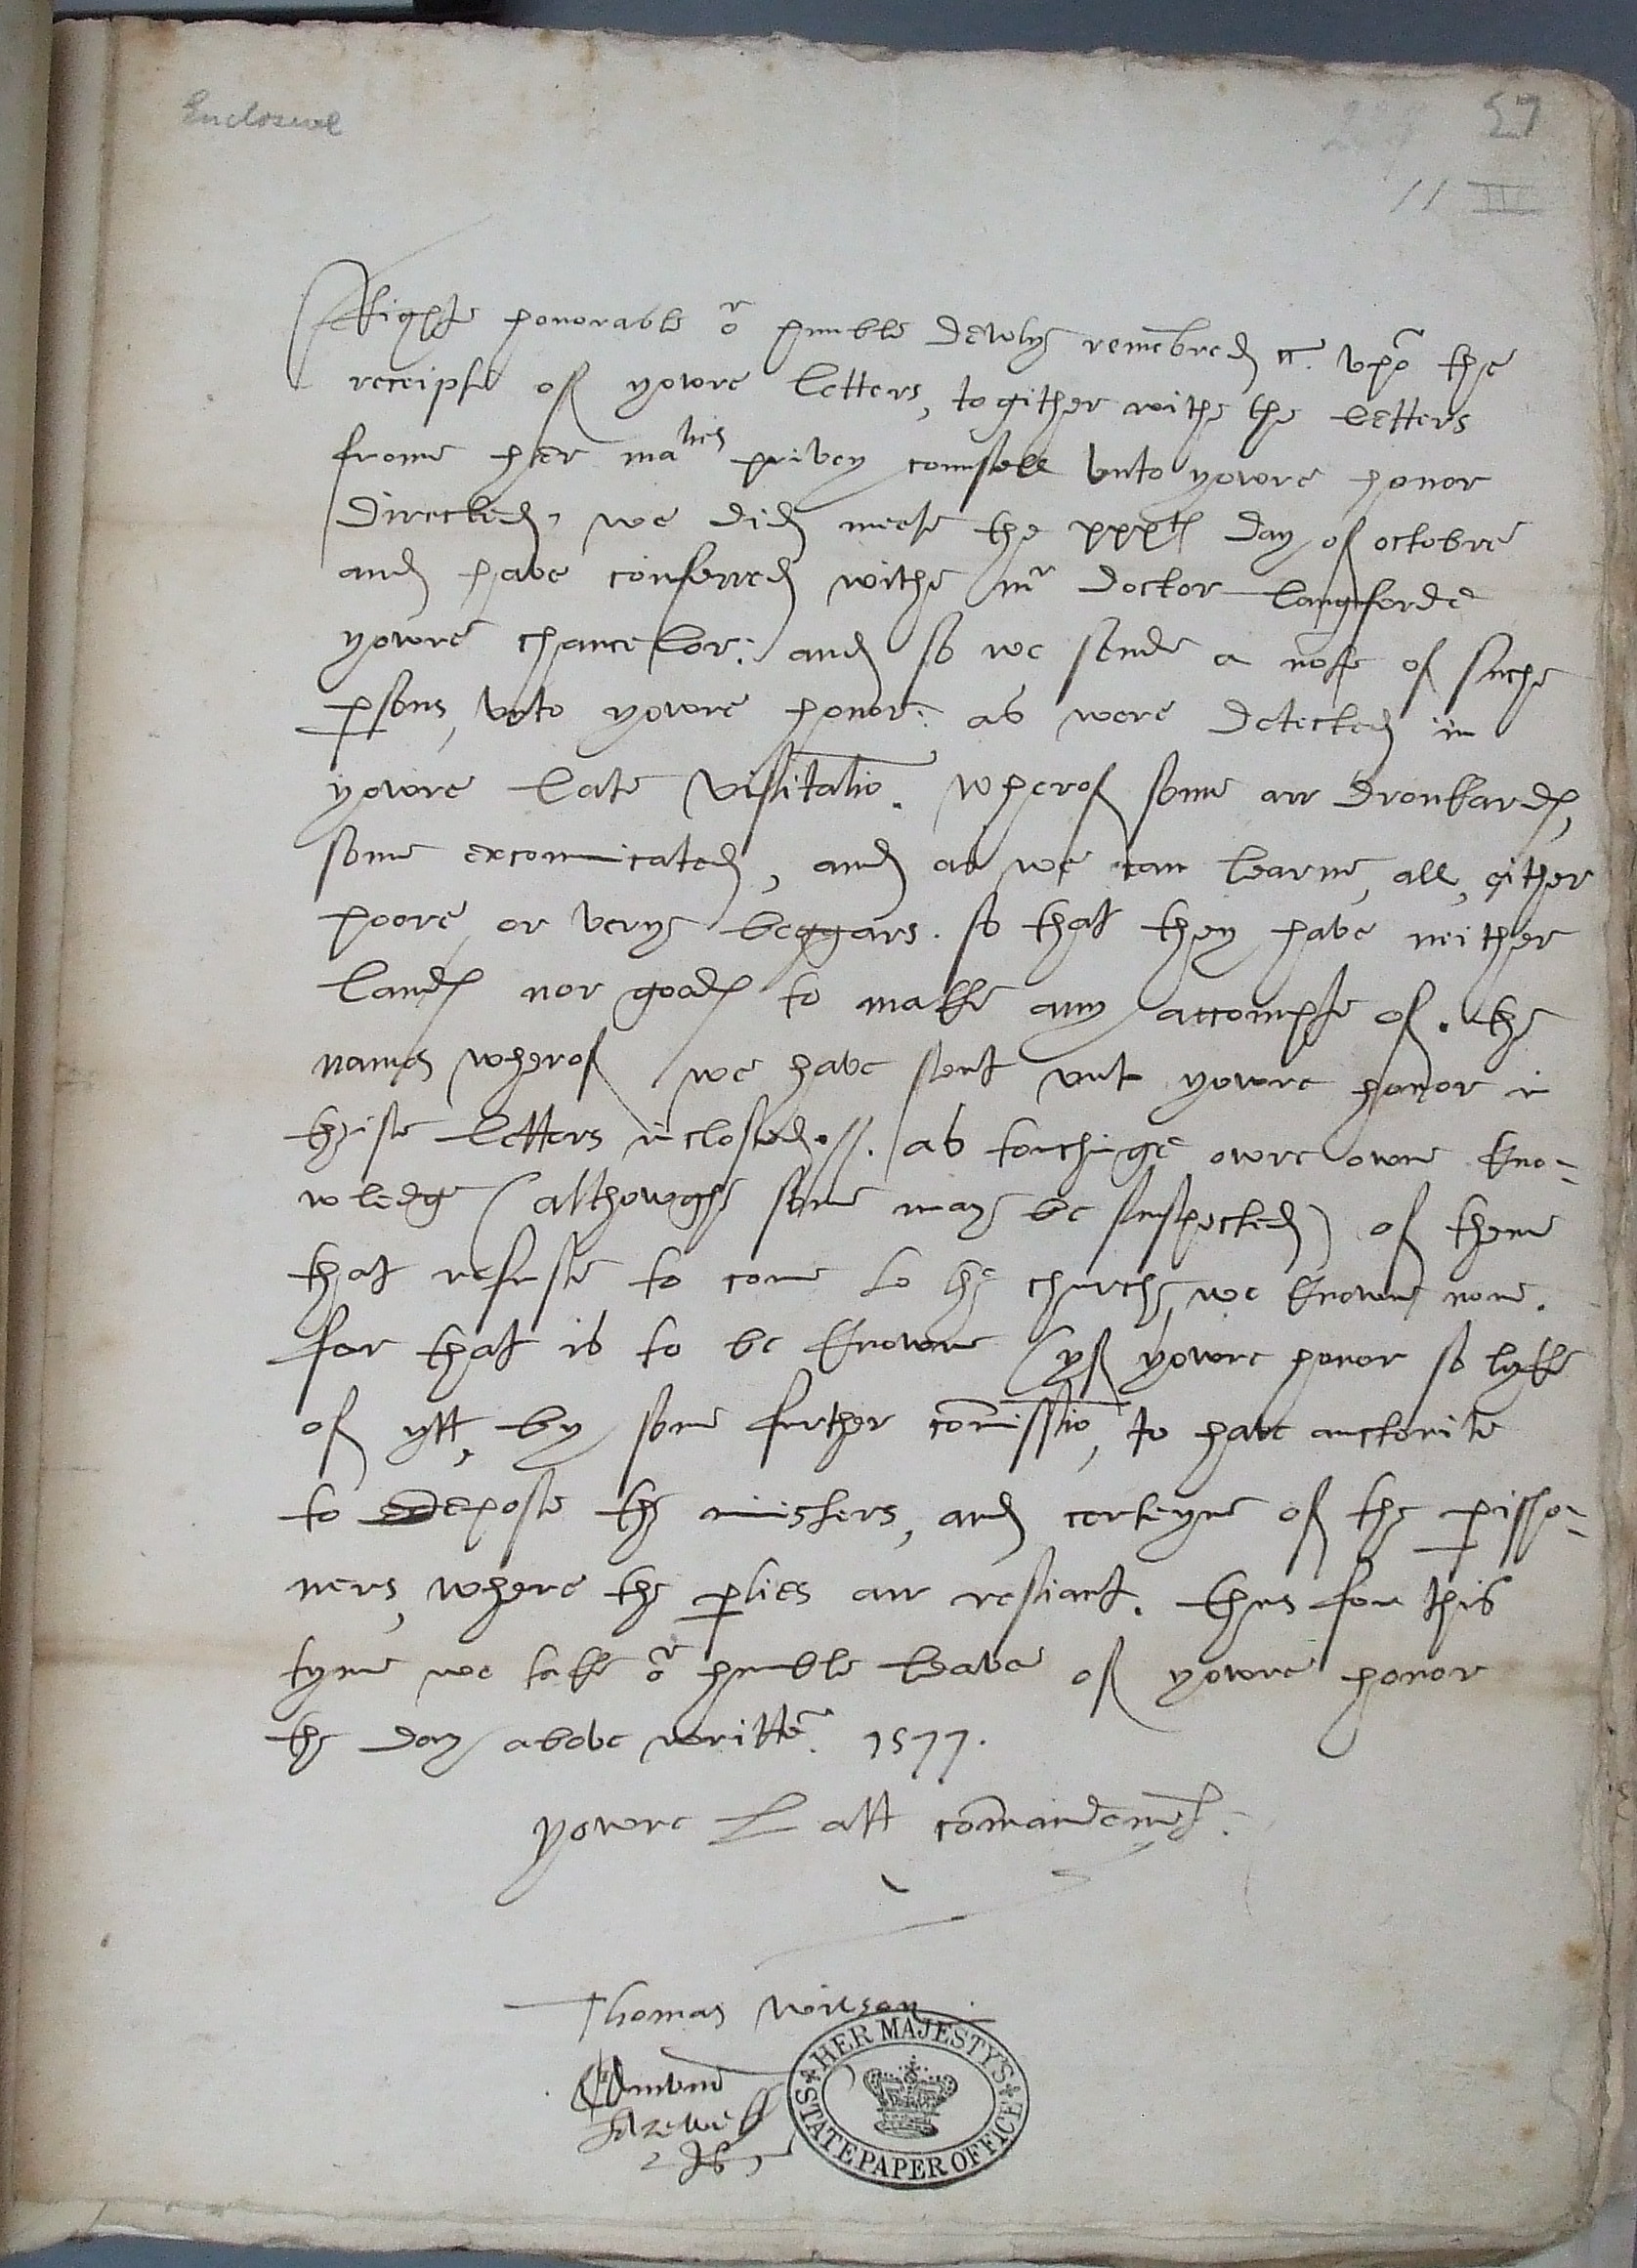 Enclosure
57
11 III
Righte honorable or humble dewtys remēbred &c. vpō the
receipte of yowre letters, togither withe the letters
frome her maties privey counsell vnto yowre honor
directed, we did meete the xxxth day of octobre
and have conferred withe mr doctor langforde
yowre chancelor: and so we sende a note of suche
psons, vnto yowre honor: as were detected in
yowre late visitatiō. wherof some arr dronkardes,
some excommicated, and as we can learne, all, either
poore, or verye beggars. so that they have neither
landes nor goodes to make any accompte of. the
names wherof we have sent vnto yowre honor in
theise letters inclosed. //. as touchinge owre owne kno-
wledge (althowghe some maye be suspected) of theme
that refuse to come to the churche, we knowe none.
for that is to be knowne (yf yowre honor so lyke
of ytt, by some further comissiō, to have auctorite
to depose the ministers, and certeyne of the pissho-
ners, where the pties arr resiant. thus for this
tyme we take or humble leave of yowre honor
the day above writtē. 1577.
yowre L att comandemēt.
Thomas Wilson
HER MAJESTY'S
STATE PAPER OFFICE